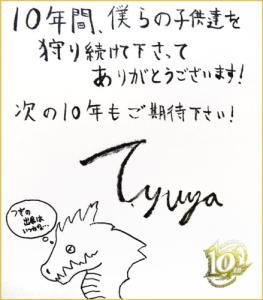 10年間、僕らの子供達を
狩り続けて下さって
ありがとうございます!
次の10年もご期待下さい!
Tyuya
つぎの
出番は
いつかな…
10